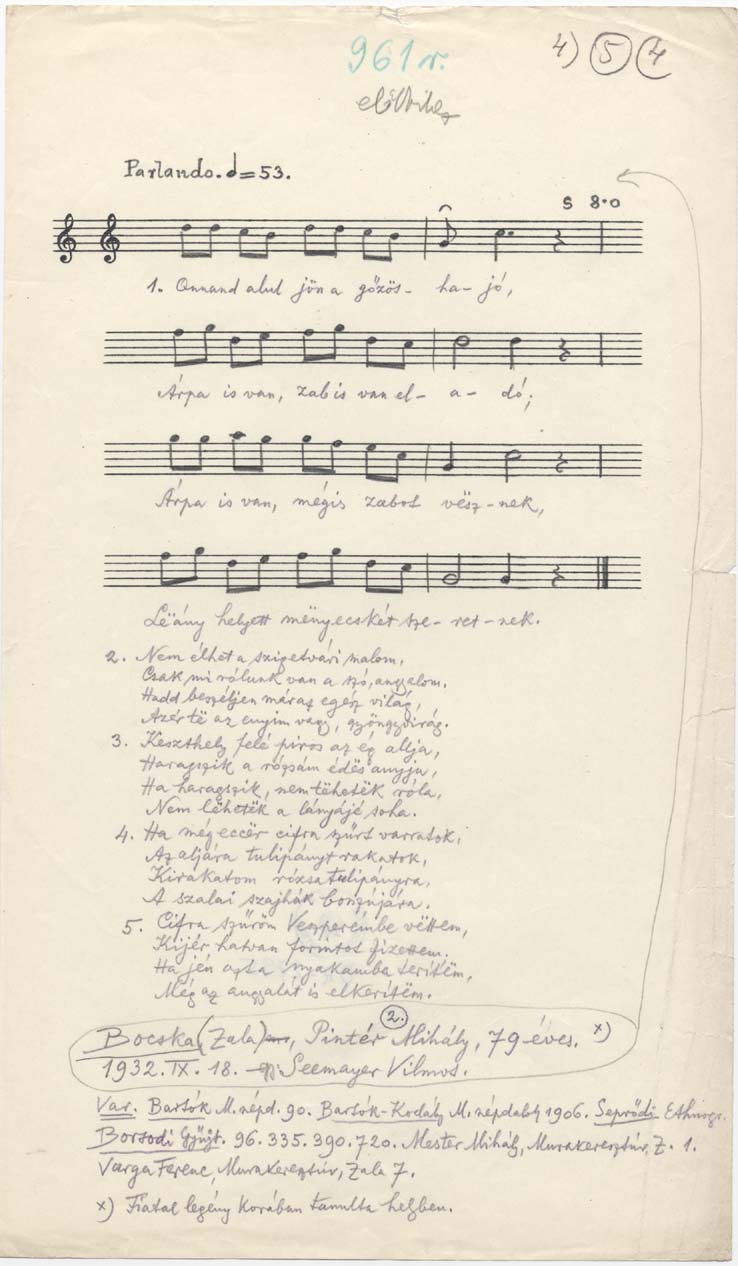 961 r.
4) 5 4
Parlando. = 53.
S 8.0
1. Onnand alul jön a gőzös- ha- jó,
Árpa is van, zab is van el- a- dó;
Árpa is van, mégis zabot vësz-nek,
Lëány helyett mënyecskét sze- ret-nek.
2. Nem élhet a szigetvári malom,
Csak mi rólunk van a szó, angyalom.
Hadd beszéljen máraz egész világ,
Azér të az enyim vagy, gyöngyvirág.
3. Keszthely felé piros az ég allja,
Haragszik a rózsám édës anyja,
Ha haragszik, nem tëhetëk róla,
Nem lëhetëk a lányájé soha.
4. Ha még eccër cifra szűrt varratok,
Az aljára tulipányt rakatok,
Kirakatom rózsa tulipányra,
A szalai szajhák bosszújára.
5. Cifra szűröm Veszprémbe vëttem,
Kijér hatvan forintot fizettem.
Ha jén azt a nyakamba terítëm,
Még az angyalát is elkerítëm.
2.
Bocska (Zala), Pintér Mihály, 79 éves. x)
1932. IX. 18. Seemayer Vilmos.
Var. Bartók M. népd. 90. Bartók-Kodály M. népdalok 1906. Seprődi Ethnogr.
Borsodi Gyűjt. 96. 335. 390. 720. Mester Mihály, Murakeresztúr, Z. 1.
Varga Ferenc, Murakeresztúr, Zala 7.
x) Fiatal legény korában tanulta helyben.